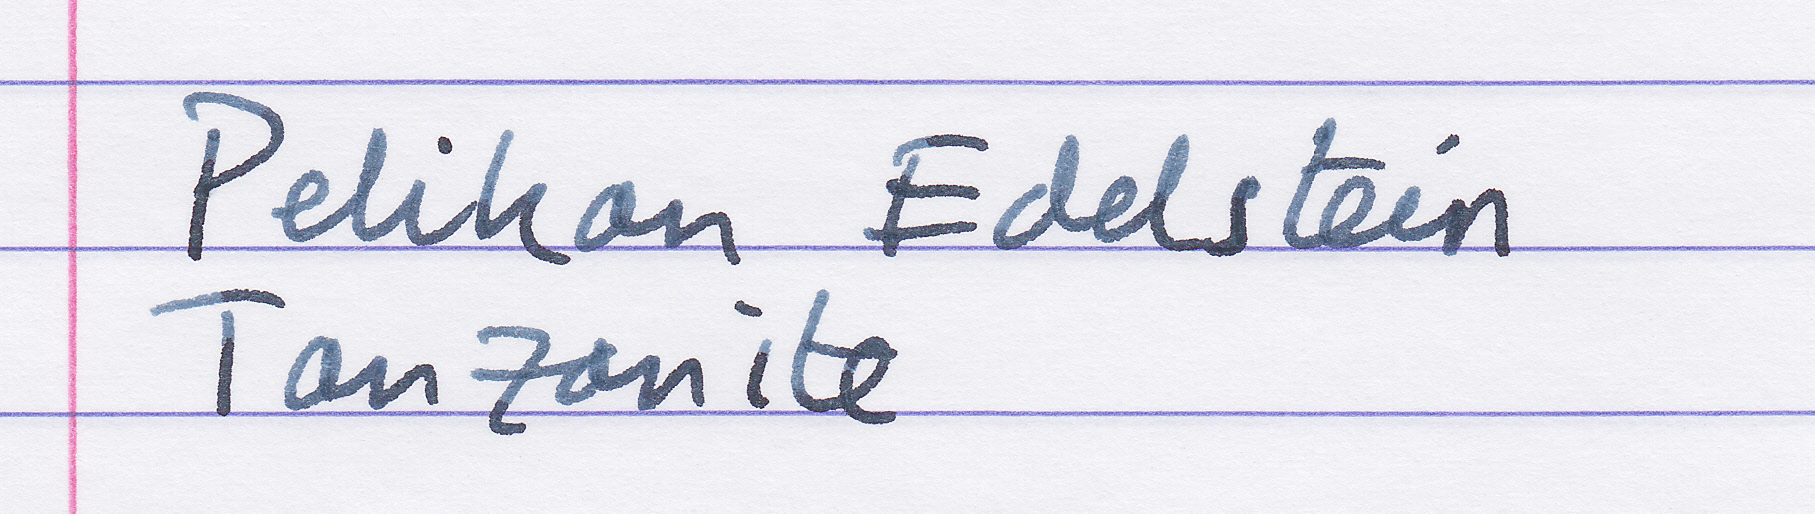 Pelikan Edelstein
Tanzanite